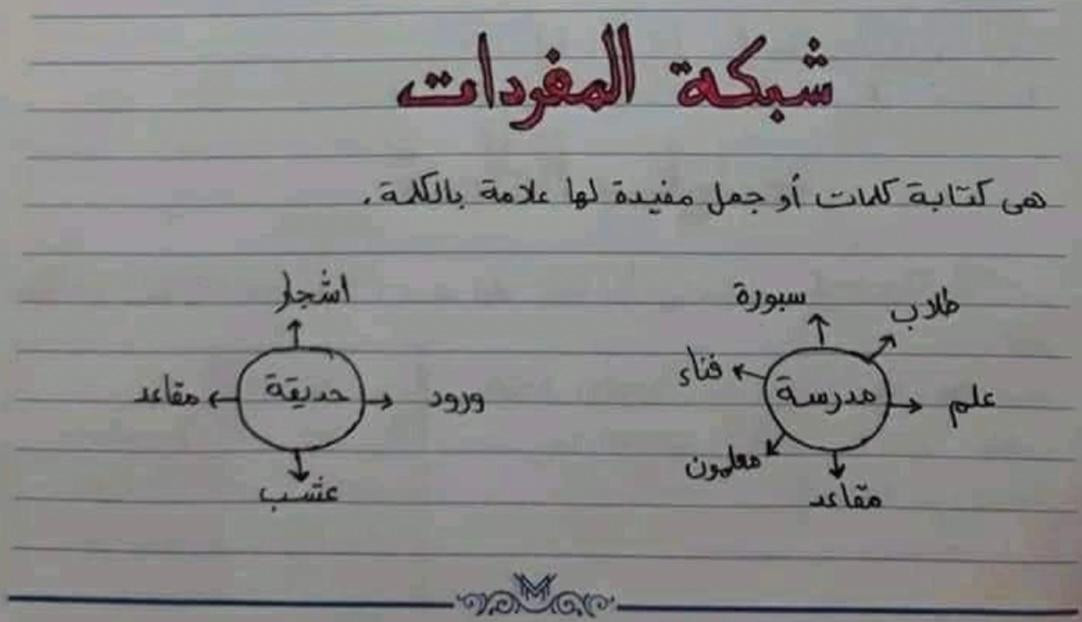 شبكة المفردات
هى كتابة كلمات أو جمل مفيدة لها علامة بالكلمة.
سبورة
طلاب
فناء
مدرسة
علم
معلمون
مقاعد
اشجار
ورود
حديقة
مقاعد
عشب